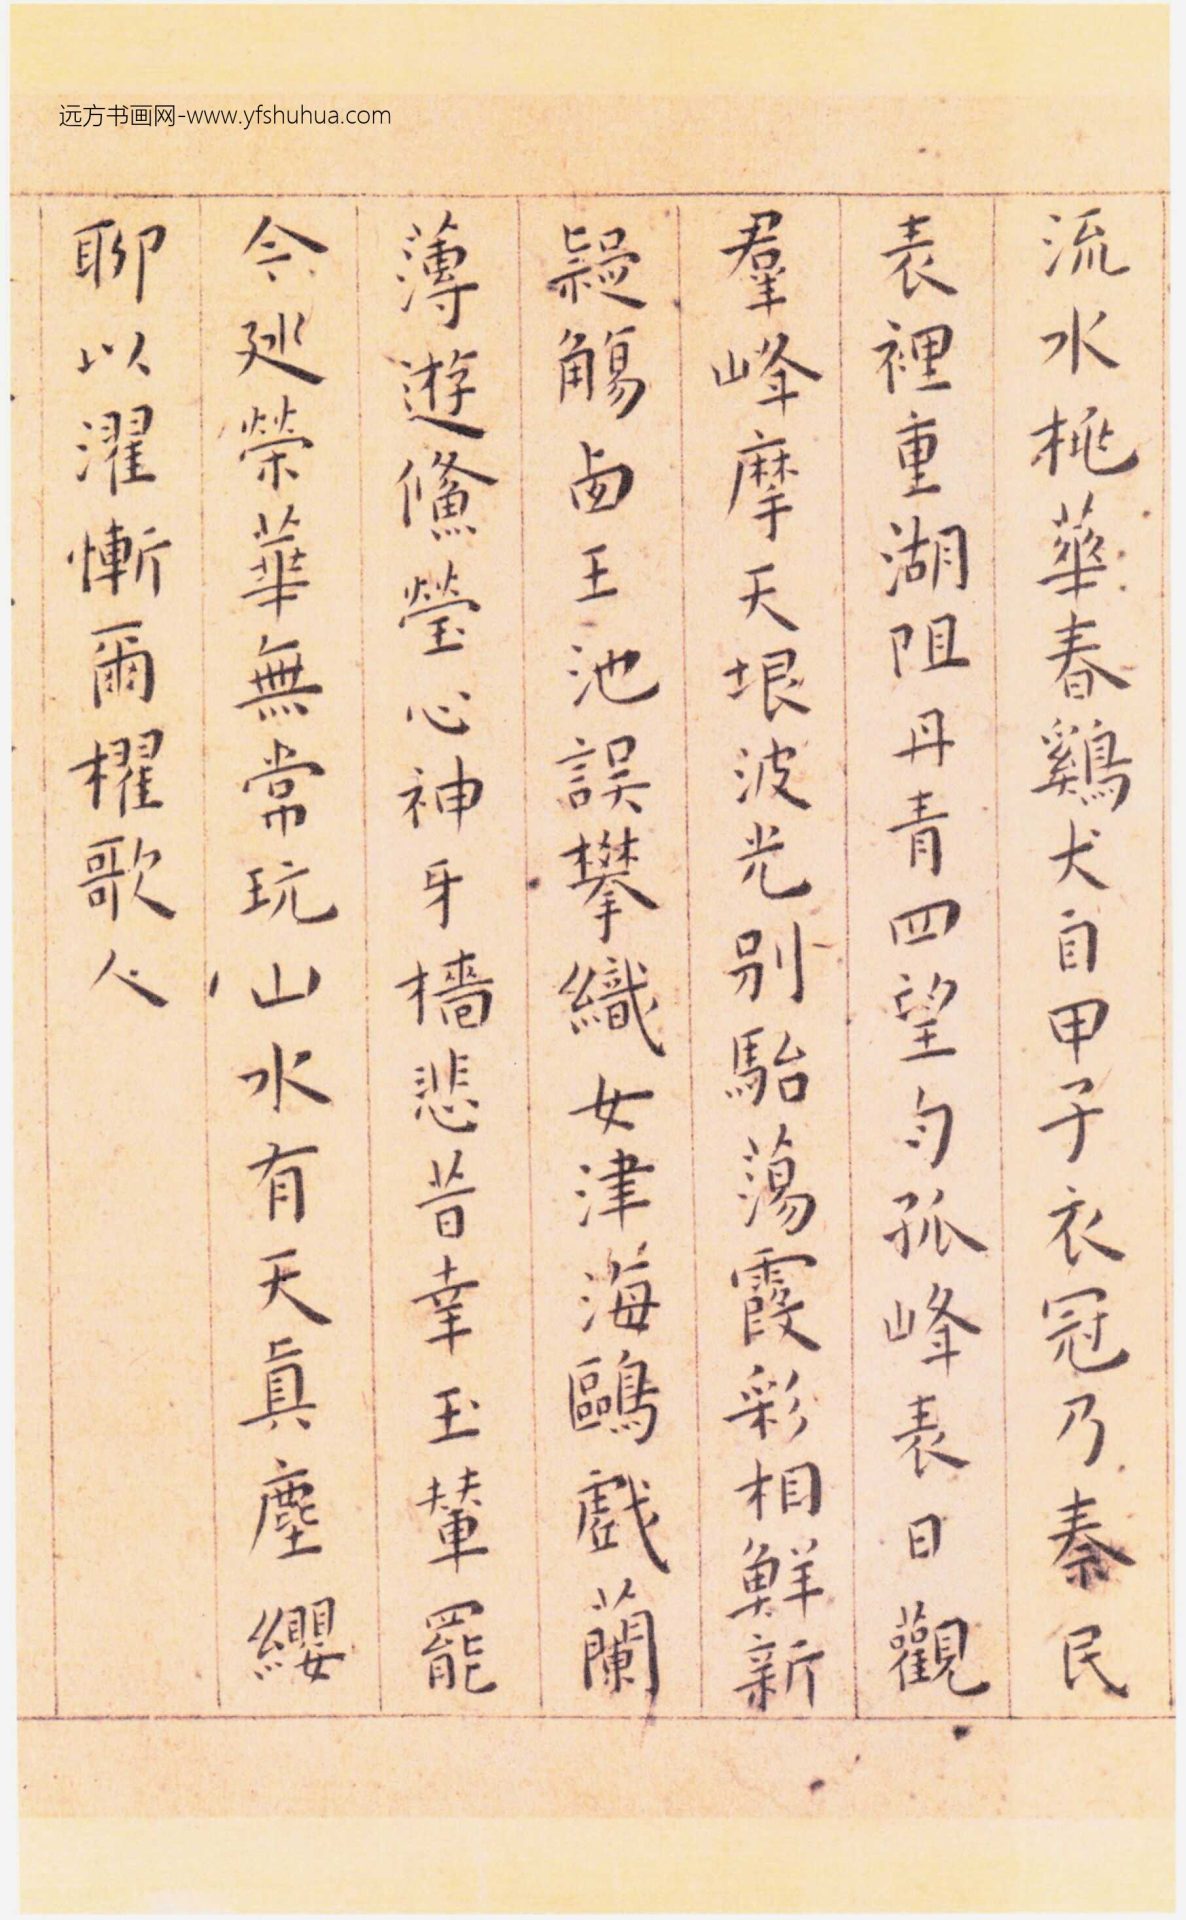 远方书画网-www.yfshuhua.com
流水桃華春鷄犬自甲子衣冠乃秦民
表裡重湖阻丹青四望勻孤峰表日觀
羣峰摩天垠波光別駘蕩霞彩相鮮新
疑觴王池誤攀織女津海鷗戲蘭
薄遊鯈瑩心神牙檣悲昔幸玉輦罷
今廵榮華無常玩山水有天真塵纓
聊以濯慚爾櫂歌人